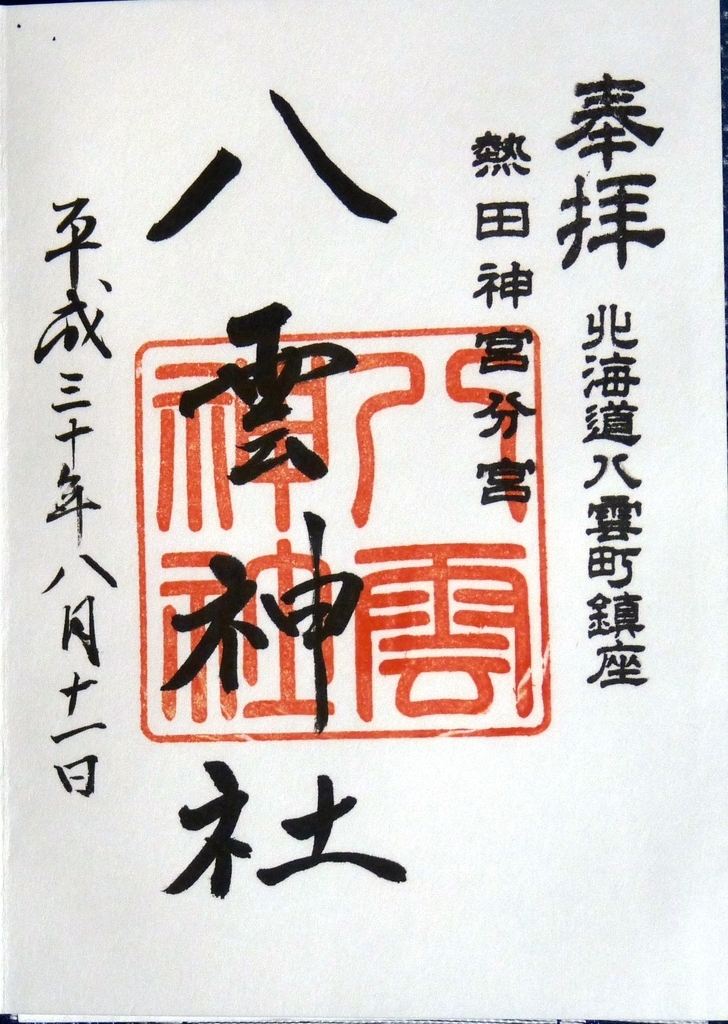 奉拝
北海道八雲町鎮座
熱田神宮分宮
八雲神社
八雲神社
平成三十年八月十一日